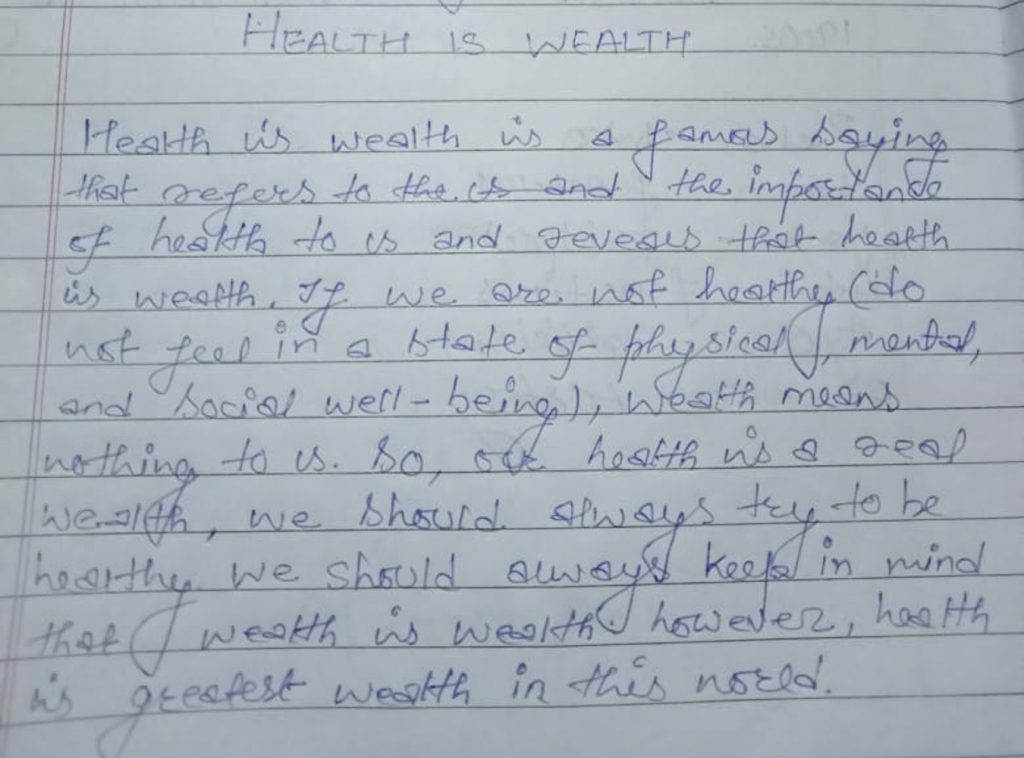 HEALTH IS WEALTH
Health is wealth is a famous saying
that refers to the is and the importance
of health to us and reveals that health
is wealth. If we are not healthy (do
not feel in a state of physical, mental,
and social well-being), wealth means
nothing to us. So, our health is a real
wealth, we should always try to be
healthy we should always keep in mind
that wealth is wealth however, health
is greatest wealth in this world.